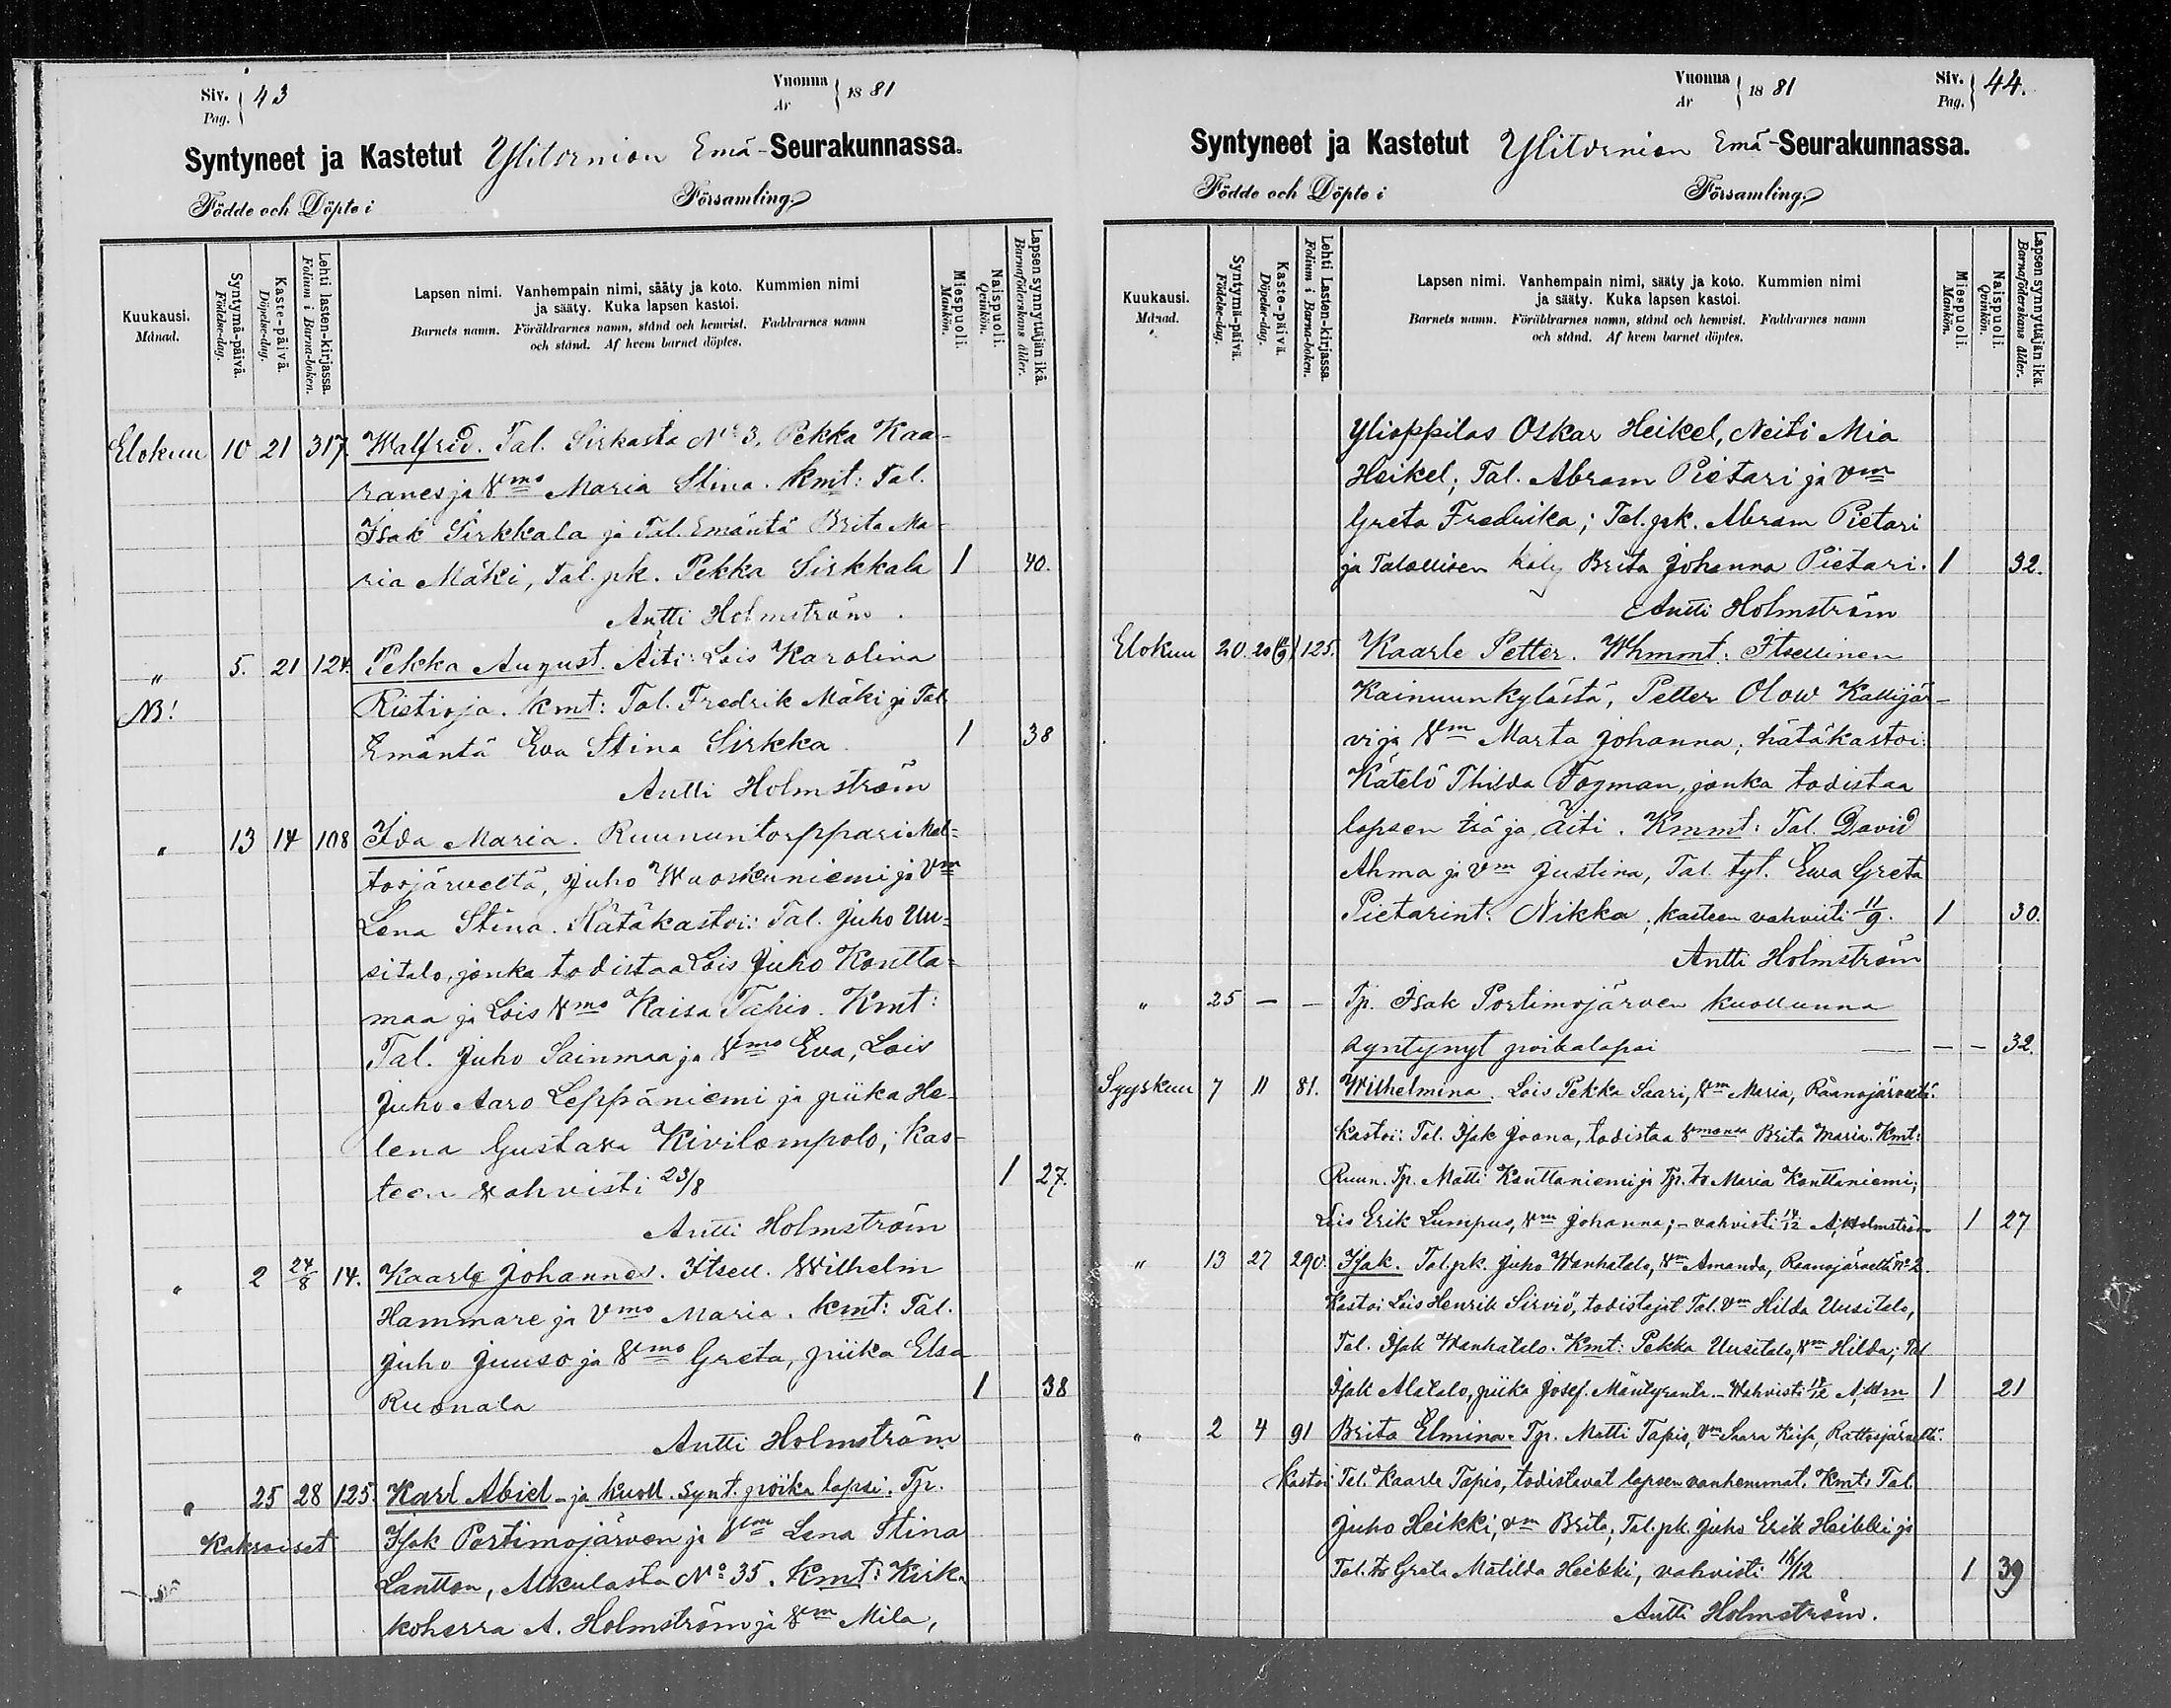 Siv. 43
Pag.
Vuonna 1881
År
Syntyneet ja Kastetut Ylitornion Emä-Seurakunnassa.
Födde och Döpte i Församling.
Kuukausi. Månad.
Syntymä-päivä. Födelse-dag.
Kaste-päivä. Döpelse-dag.
Lehti lasten-kirjassa. Folium i Barna-boken.
Lapsen nimi. Vanhempain nimi, sääty ja koto. Kummien nimi
ja sääty. Kuka lapsen kastoi.
Barnets namn. Föräldrarnes namn, stånd och hemvist. Faddrarnes namn
och stånd. Af hvem barnet döptes.
Miespuoli. Mankön.
Naispuoli. Qvinkön.
Lapsen synnyttäjän ikä. Barnaföderskans ålder.
Elokuu 10 21 317. Walfrid. Tal. Sirkasta No 3, Pekka Kaa-
ranes ja Vmo Maria Stina. Kmt: Tal.
Isak Sirkkala ja Tal. Emäntä Brita Ma-
ria Mäki, Tal. pk. Pekka Sirkkala 1 40.
Antti Holmström.
" 5. 21 124. Pekka August. Äiti: Lois Karolina
NB! Ristioja. Kmt: Tal. Fredrik Mäki ja Tal.
Emäntä Eva Stina Sirkka. 1 38
Antti Holmström
" 13 14 108 Ida Maria. Ruununtorppari Mel-
tosjärveltä, Juho Wuoskuniemi ja Vm
Lena Stina. Hätäkastoi: Tal. Juho Uu-
sitalo, jonka todistaa Lois Juho Kontta-
maa ja Lois Vmo Kaisa Tapio. Kmt:
Tal. Juho Sainmaa ja Vmo Eva, Lois
Juho Aaro Leppäniemi ja piika He-
lena Gustava Kivilompolo; Kas-
teen vahvisti 23/8 1 27.
Antti Holmström
" 2 24/8 14. Kaarle Johannes. Itsell. Wilhelm
Hammare ja Vmo Maria. Kmt: Tal.
Juho Juuso ja Vmo Greta, piika Elsa
Ruonala 1 38
Antti Holmström
" 25 28 125. Karl Abiel - ja kuoll. synt. poika lapsi. Tp.
Kaksoiset Isak Portimojärven ja Vm Lena Stina
Lantton, Alkulasta No 35. Kmt: Kirk-
koherra A. Holmström ja Vm Mila,
Vuonna 1881
År
Siv. 44.
Pag.
Syntyneet ja Kastetut Ylitornion Emä-Seurakunnassa.
Födde och Döpte i Församling.
Kuukausi. Månad.
Syntymä-päivä. Födelse-dag.
Kaste-päivä. Döpelse-dag.
Lehti Lasten-kirjassa. Folium i Barna-boken.
Lapsen nimi. Vanhempain nimi, sääty ja koto. Kummien nimi
ja sääty. Kuka lapsen kastoi.
Barnets namn. Föräldrarnes namn, stånd och hemvist. Faddrarnes namn
och stånd. Af hvem barnet döptes.
Miespuoli. Mankön.
Naispuoli. Qvinkön.
Lapsen synnyttäjän ikä. Barnaföderskans ålder.
Ylioppilas Oskar Heikel, Neiti Mia
Heikel; Tal. Abram Pietari ja Vm
Greta Fredrika; Tal. pk. Abram Pietari
ja Talollisen käly Brita Johanna Pietari. 1 32.
Antti Holmström
Elokuu 20. 20 125. Kaarle Petter. Whmmt: Itsellinen
Kainuunkylästä, Petter Olow Kallijär-
vi ja Vm Marta Johanna; hätäkastoi:
Kätelö Thilda Fogman, jonka todistaa
lapsen Isä ja Äiti. Kmmt: Tal. David
Ahma ja Vm Justina, Tal. tyt. Ewa Greta
Pietarint. Nikka; kasteen vahvisti 11/9. 1 30.
Antti Holmström
" 25 - - Tp. Isak Portimojärven kuollunna
syntynyt poikalapsi - - 32.
Syyskuu 7 11 81. Wilhelmina. Lois Pekka Saari, Vm Maria, Raanojärveltä.
Kastoi: Tal. Isak Joona, todistaa Vmonsa Brita Maria. Kmt:
Ruun. Tp. Matti Konttaniemi ja Tp. tr Maria Konttaniemi;
Lois Erik Lumpus, Vm Johanna; - vahvisti 14/12 A. Holmström 1 27
" 13 27 290. Isak. Tal. pk. Juho Wanhatalo, Vm Amanda, Raanojärveltä No 2.
Kastoi Lois Henrik Sirviö, todistajat Tal. Vm Hilda Uusitalo,
Tal. Isak Wanhatalo. Kmt: Pekka Uusitalo, Vm Hilda; Tal
Isak Alatalo, piika Josef. Mäntyranta. - Wahvisti 18/12 A. Hm 1 21
" 2 4 91 Brita Elmina. Tp. Matti Tapio, Vm Saara Kaisa, Rattosjärveltä.
Kastoi Tal. Kaarle Tapio, todistavat lapsen vanhemmat. Kmt: Tal.
Juho Heikki, Vm Brita, Tal. pk. Juho Erik Heikki ja
Tal. tr Greta Matilda Heikki, vahvisti 18/12 1 39
Antti Holmström.